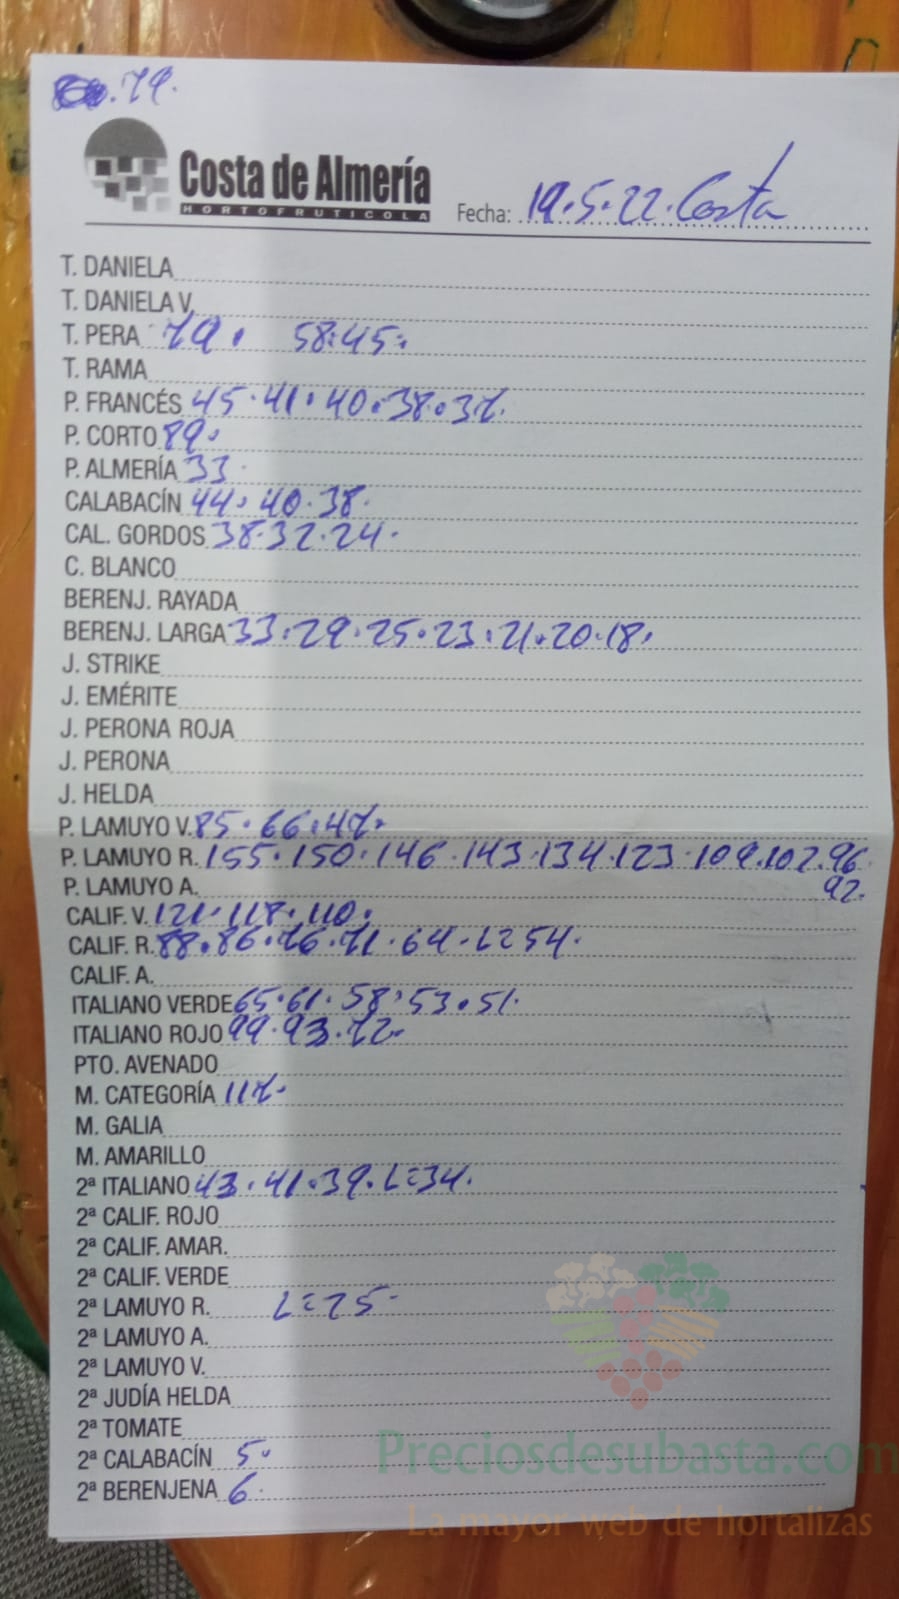 .79.
Costa de Almería
HORTOFRUTICOLA
Fecha: 19.5.22. Costa
T. DANIELA
T. DANIELA V.
T. PERA 79. 58.45.
T. RAMA
P. FRANCÉS 45.41.40.38.37.
P. CORTO 89.
P. ALMERÍA 33.
CALABACÍN 44.40.38.
CAL. GORDOS 38.32.24.
C. BLANCO
BERENJ. RAYADA
BERENJ. LARGA 33.29.25.23.21.20.18.
J. STRIKE
J. EMÉRITE
J. PERONA ROJA
J. PERONA
J. HELDA
P. LAMUYO V. 85.66.47.
P. LAMUYO R. 155.150.146.143.134.123.109.102.96.
P. LAMUYO A. 92.
CALIF. V. 121.118.110.
CALIF. R. 88.86.76.71.64-L=54.
CALIF. A.
ITALIANO VERDE 65.61.58.53.51.
ITALIANO ROJO 99.93.72.
PTO. AVENADO
M. CATEGORÍA 117.
M. GALIA
M. AMARILLO
2ª ITALIANO 43.41.39.L=34.
2ª CALIF. ROJO
2ª CALIF. AMAR.
2ª CALIF. VERDE
2ª LAMUYO R. L=75-
2ª LAMUYO A.
2ª LAMUYO V.
2ª JUDÍA HELDA
2ª TOMATE
2ª CALABACÍN 5.
2ª BERENJENA 6.
Preciosdesubasta.com
La mayor web de hortalizas